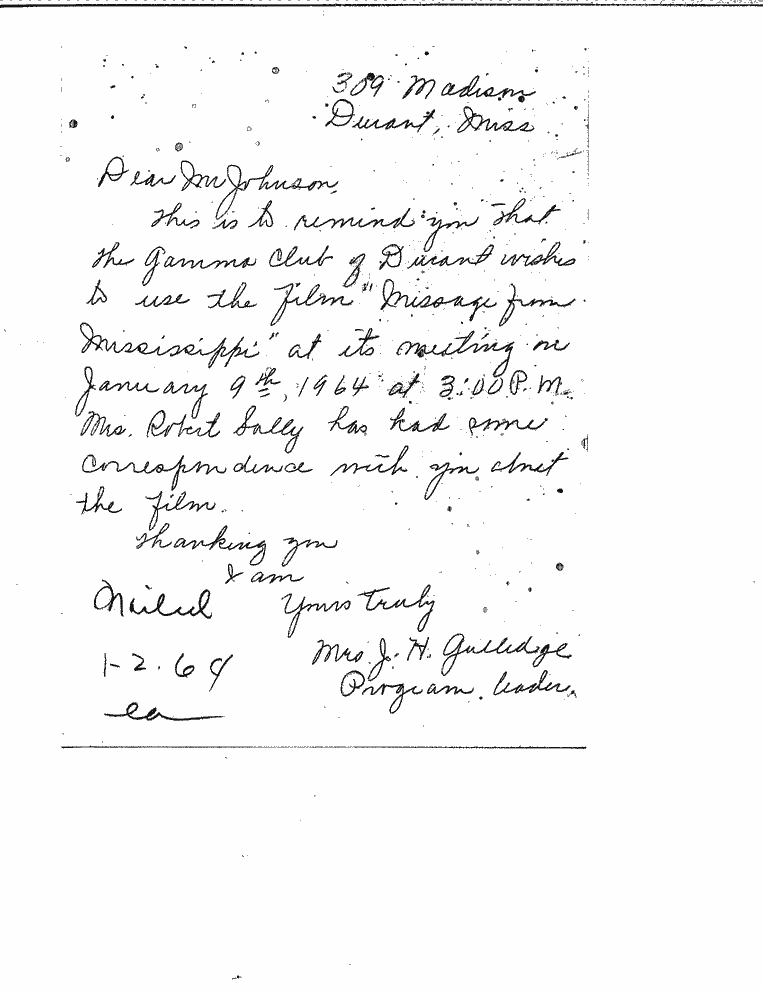 309 Madison
Durant, Miss
Dear Mr Johnson,
This is to remind you that
the Gamma Club of Durant wishes
to use the film "Message from
Mississippi" at its meeting on
January 9th, 1964 at 3:00 P.M.
Mrs. Robert Sally has had some
correspondence with you about
the film.
Thanking you
I am
Yours Truly
Mailed
Mrs J. H. Gulledge
1-2-64
Program leader.
ea